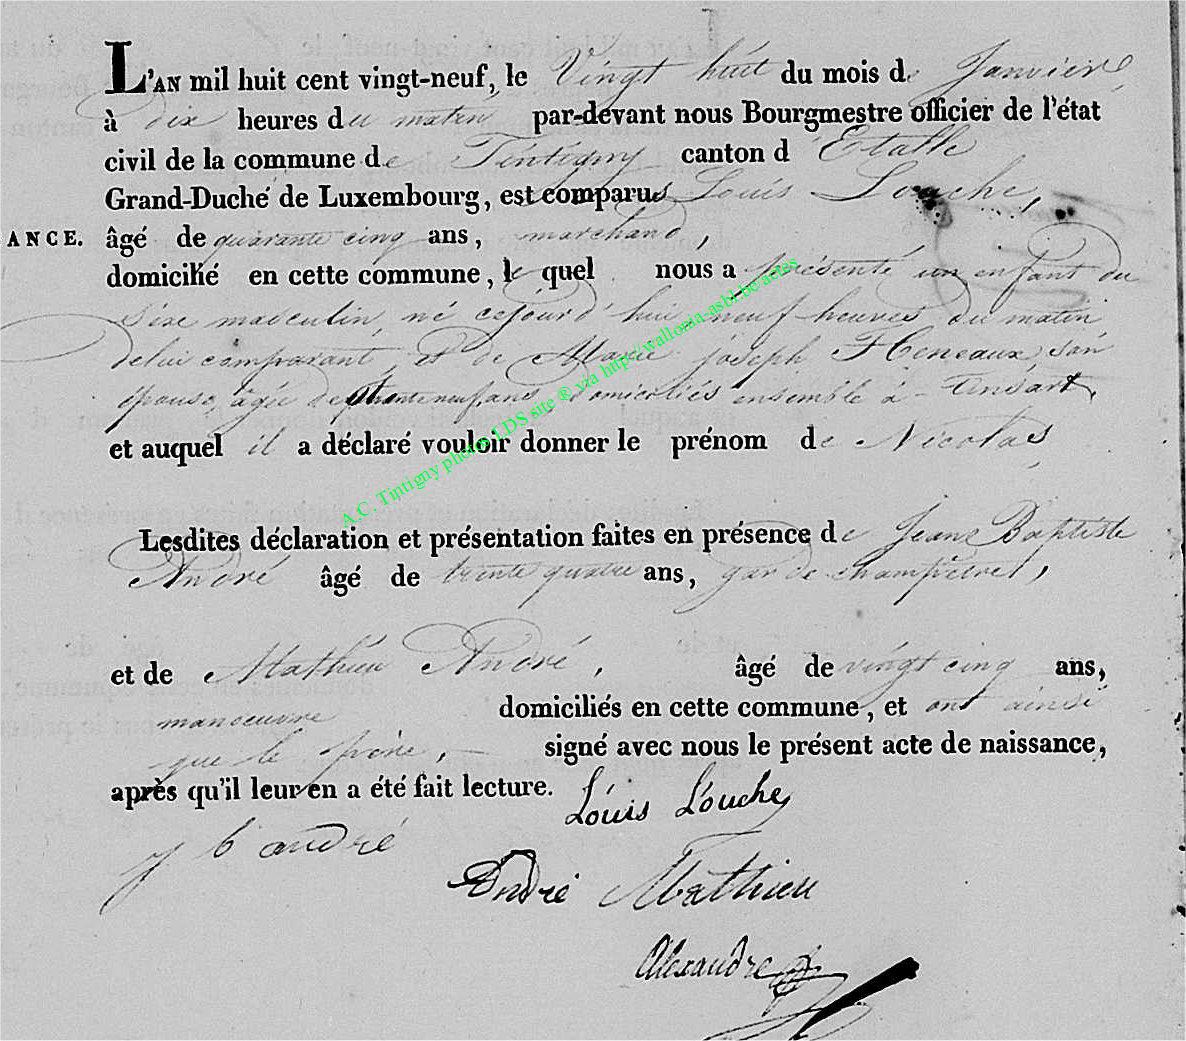 L'AN mil huit cent vingt-neuf, le Vingt huit du mois de Janvier
à dix heures du matin par-devant nous Bourgmestre officier de l'état
civil de la commune de Tintigny canton d'Etalle
Grand-Duché de Luxembourg, est comparus Louis Louche,
ANCE. âgé de quarante cinq ans, marchand,
domicilié en cette commune, le quel nous a présenté un enfant du
sexe masculin, né cejourd'hui neuf heures du matin
delui comparant, et de Marie joseph Heneaux son
épouse, agée de neuf ans, domiciliés ensemble à Ansart,
et auquel il a déclaré vouloir donner le prénom de Nicolas
A.C. Tintigny photos LDS site ® via http://wallonia-asbl.be/actes
Lesdites déclaration et présentation faites en présence de Jean Baptiste
André âgé de trente quatre ans, garde champêtre,
et de Mathieu André, âgé de vingt cinq ans,
manoeuvre domiciliés en cette commune, et ont ainsi
que le père, signé avec nous le présent acte de naissance,
après qu'il leur en a été fait lecture. Louis Louche
j b andré
André Mathieu
Alexandre